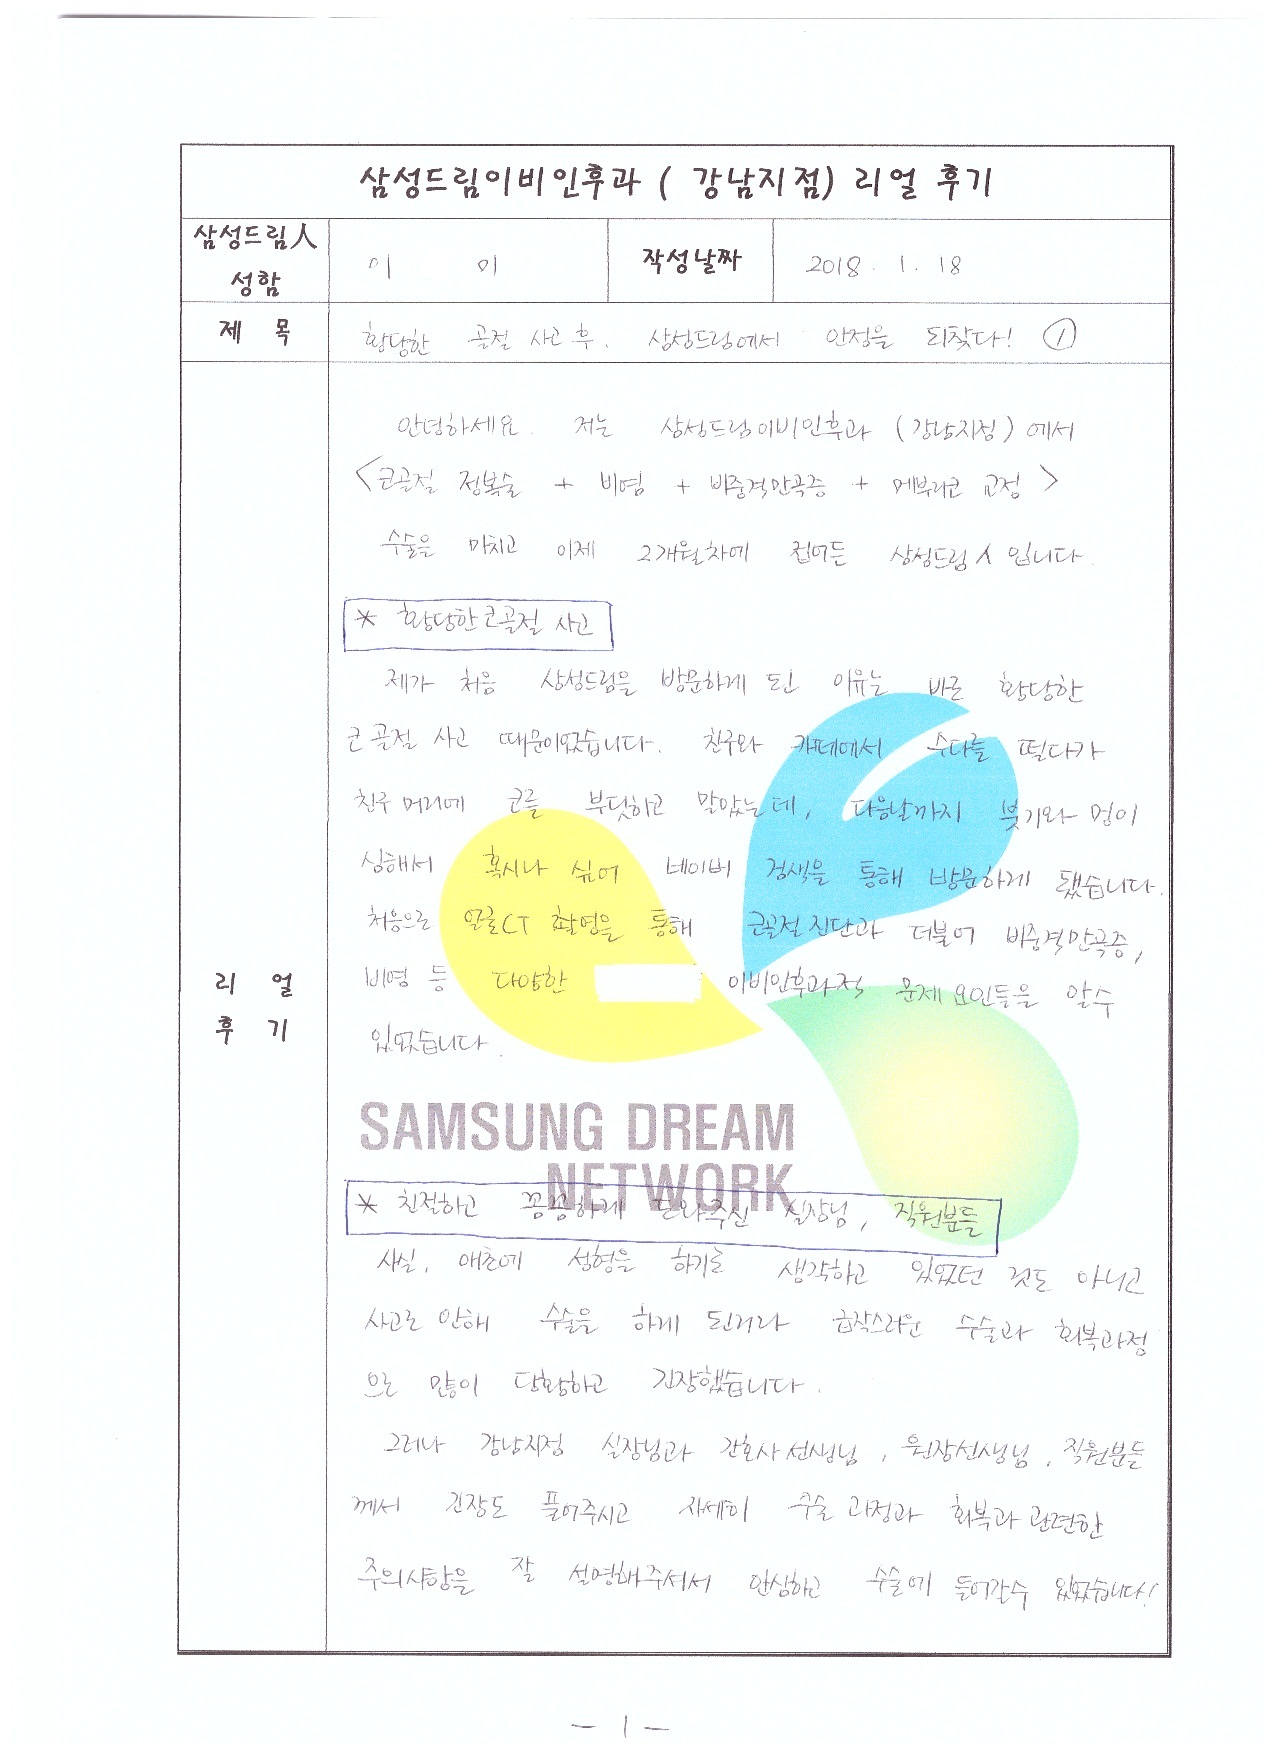 삼성드림이비인후과 ( 강남지점) 리얼 후기
삼성드림人
성함
이 이
작성날짜
2018. 1. 18
제 목
황당한 골절 사고 후, 삼성드림에서 안정을 되찾다! ①
안녕하세요. 저는 삼성드림이비인후과 (강남지점) 에서
<코골절 정복술 + 비염 + 비중격만곡증 + 메부리코 교정>
수술을 마치고 이제 2개월차에 접어든 삼성드림人 입니다.
* 황당한 코골절 사고
제가 처음 삼성드림을 방문하게 된 이유는 바로 황당한
코 골절 사고 때문이었습니다. 친구와 카페에서 수다를 떨다가
친구 머리에 코를 부딪하고 말았는데, 다음날까지 붓기와 멍이
심해서 혹시나 싶어 네이버 검색을 통해 방문하게 됐습니다.
처음으로 얼굴CT 촬영을 통해 코골절 진단과 더불어 비중격만곡증,
비염 등 다양한 이비인후과적 문제 요인들을 알수
있었습니다.
리 얼
후 기
SAMSUNG DREAM
NETWORK
* 친절하고 꼼꼼하게 도와주신 실장님, 직원분들
사실, 애초에 성형을 하기로 생각하고 있었던 것도 아니고
사고로 인해 수술을 하게 된거라 급작스러운 수술과 회복과정
으로 많이 당황하고 긴장했습니다.
그러나 강남지점 실장님과 간호사 선생님, 원장선생님, 직원분들
께서 긴장도 풀어주시고 자세히 수술 과정과 회복과 관련한
주의사항을 잘 설명해주셔서 안심하고 수술에 들어갈수 있었습니다!
- 1 -